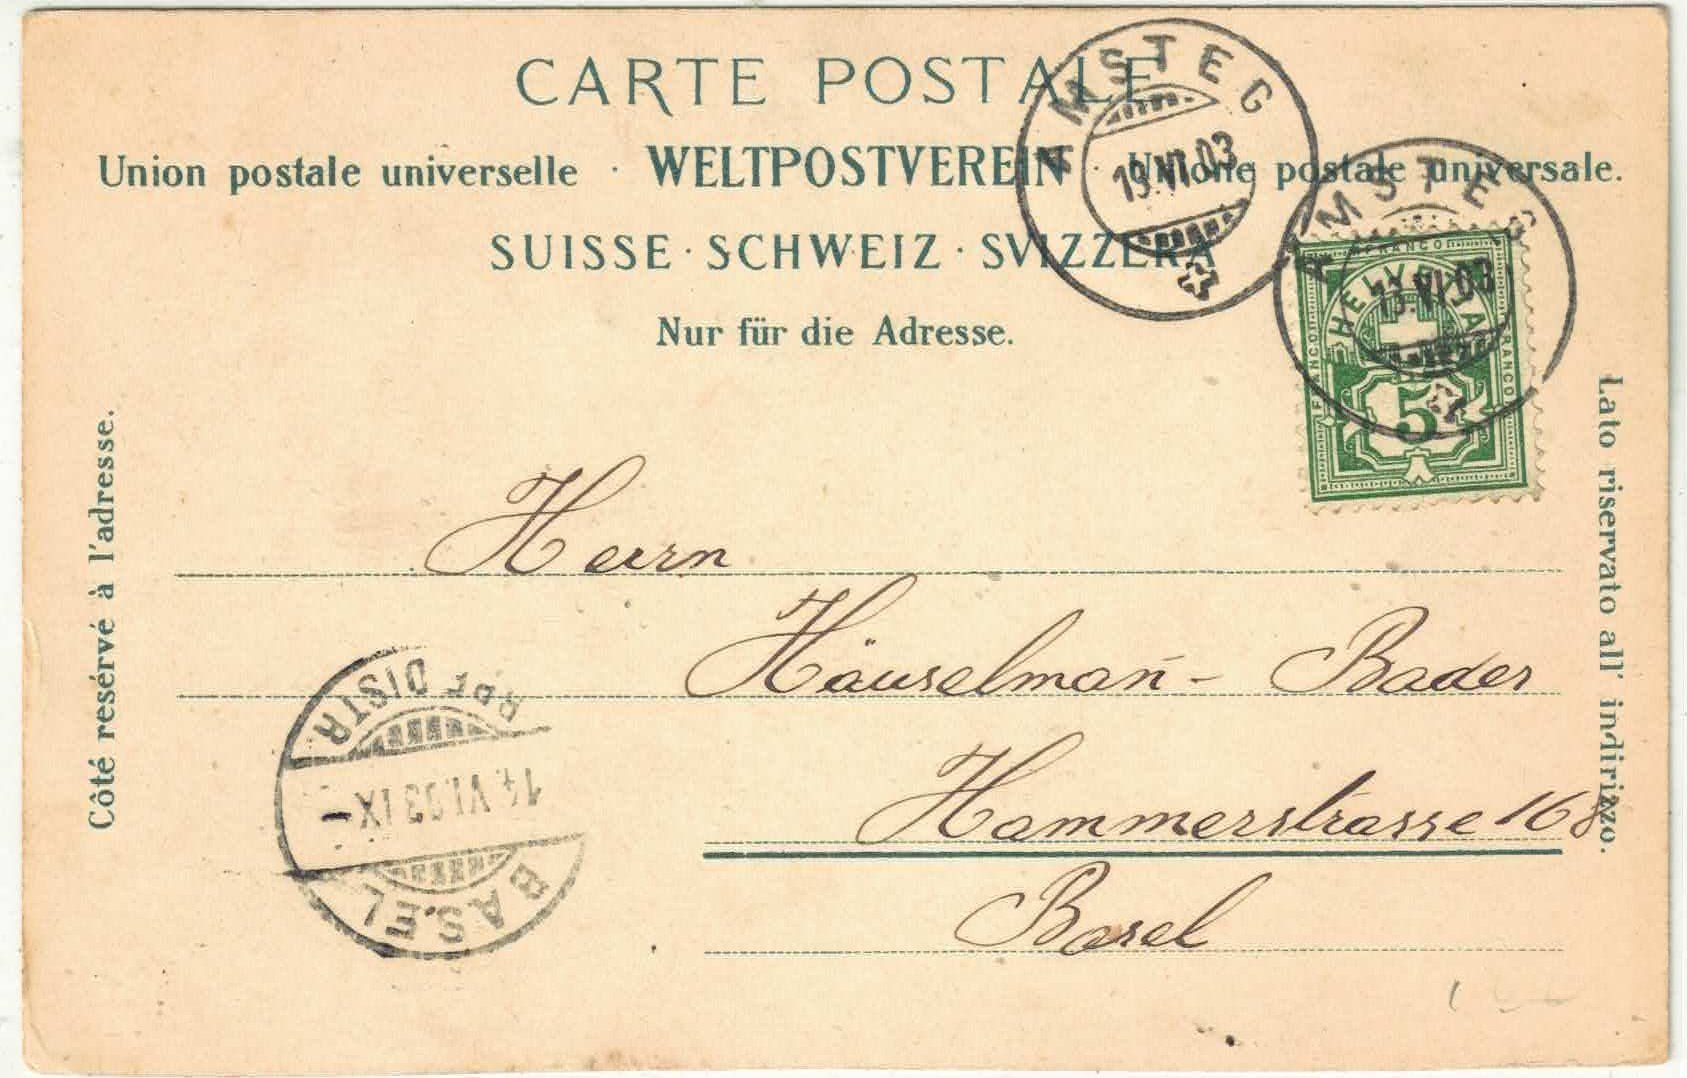 CARTE POSTALE
Union postale universelle · WELTPOSTVEREIN · Unione postale universale.
SUISSE · SCHWEIZ · SVIZZERA
Nur für die Adresse.
AMSTEG
AMSTEG
FRANCO
HELVETIA
FRANCO
FRANCO
5
Côté resérvé à l'adresse.
Lato riservato all' indirizzo.
Herrn
Häuselman̄ - Bader
Hammerstrasse 168
Basel
BASEL
14.VI.03.IX
BRF. DISTR